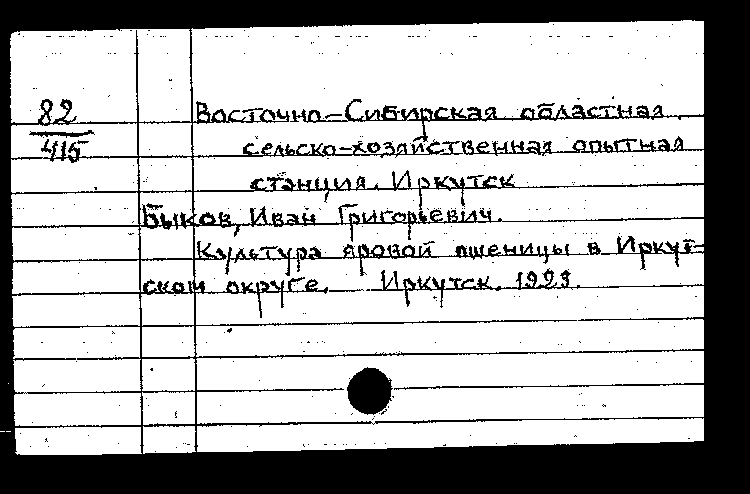 82
415
Восточно-Сибирская областная
сельско-хозяйственная опытная
станция. Иркутск
Быков, Иван Григорьевич.
Культура яровой пшеницы в Иркут-
ском округе. Иркутск.